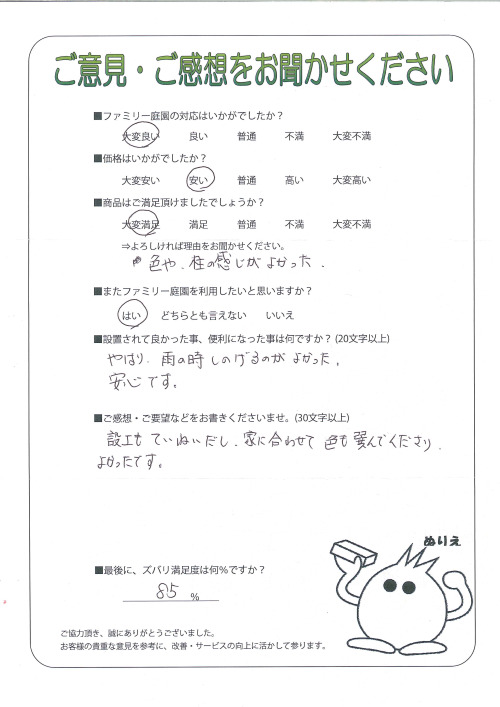 ご意見・ご感想をお聞かせください
■ファミリー庭園の対応はいかがでしたか？
大変良い 良い 普通 不満 大変不満
■価格はいかがでしたか？
大変安い 安い 普通 高い 大変高い
■商品はご満足頂けましたでしょうか？
大変満足 満足 普通 不満 大変不満
⇒よろしければ理由をお聞かせください。
色や、柱の感じがよかった．
■またファミリー庭園を利用したいと思いますか？
はい どちらとも言えない いいえ
■設置されて良かった事、便利になった事は何ですか？(20文字以上)
やはり、雨の時しのげるのがよかった。
安心です。
■ご感想・ご要望などをお書きくださいませ。(30文字以上)
設工もていねいだし、家に合わせて色も選んでくださり、
よかったです。
ぬりえ
■最後に、ズバリ満足度は何%ですか？
85 %
ご協力頂き、誠にありがとうございました。
お客様の貴重な意見を参考に、改善・サービスの向上に活かして参ります。